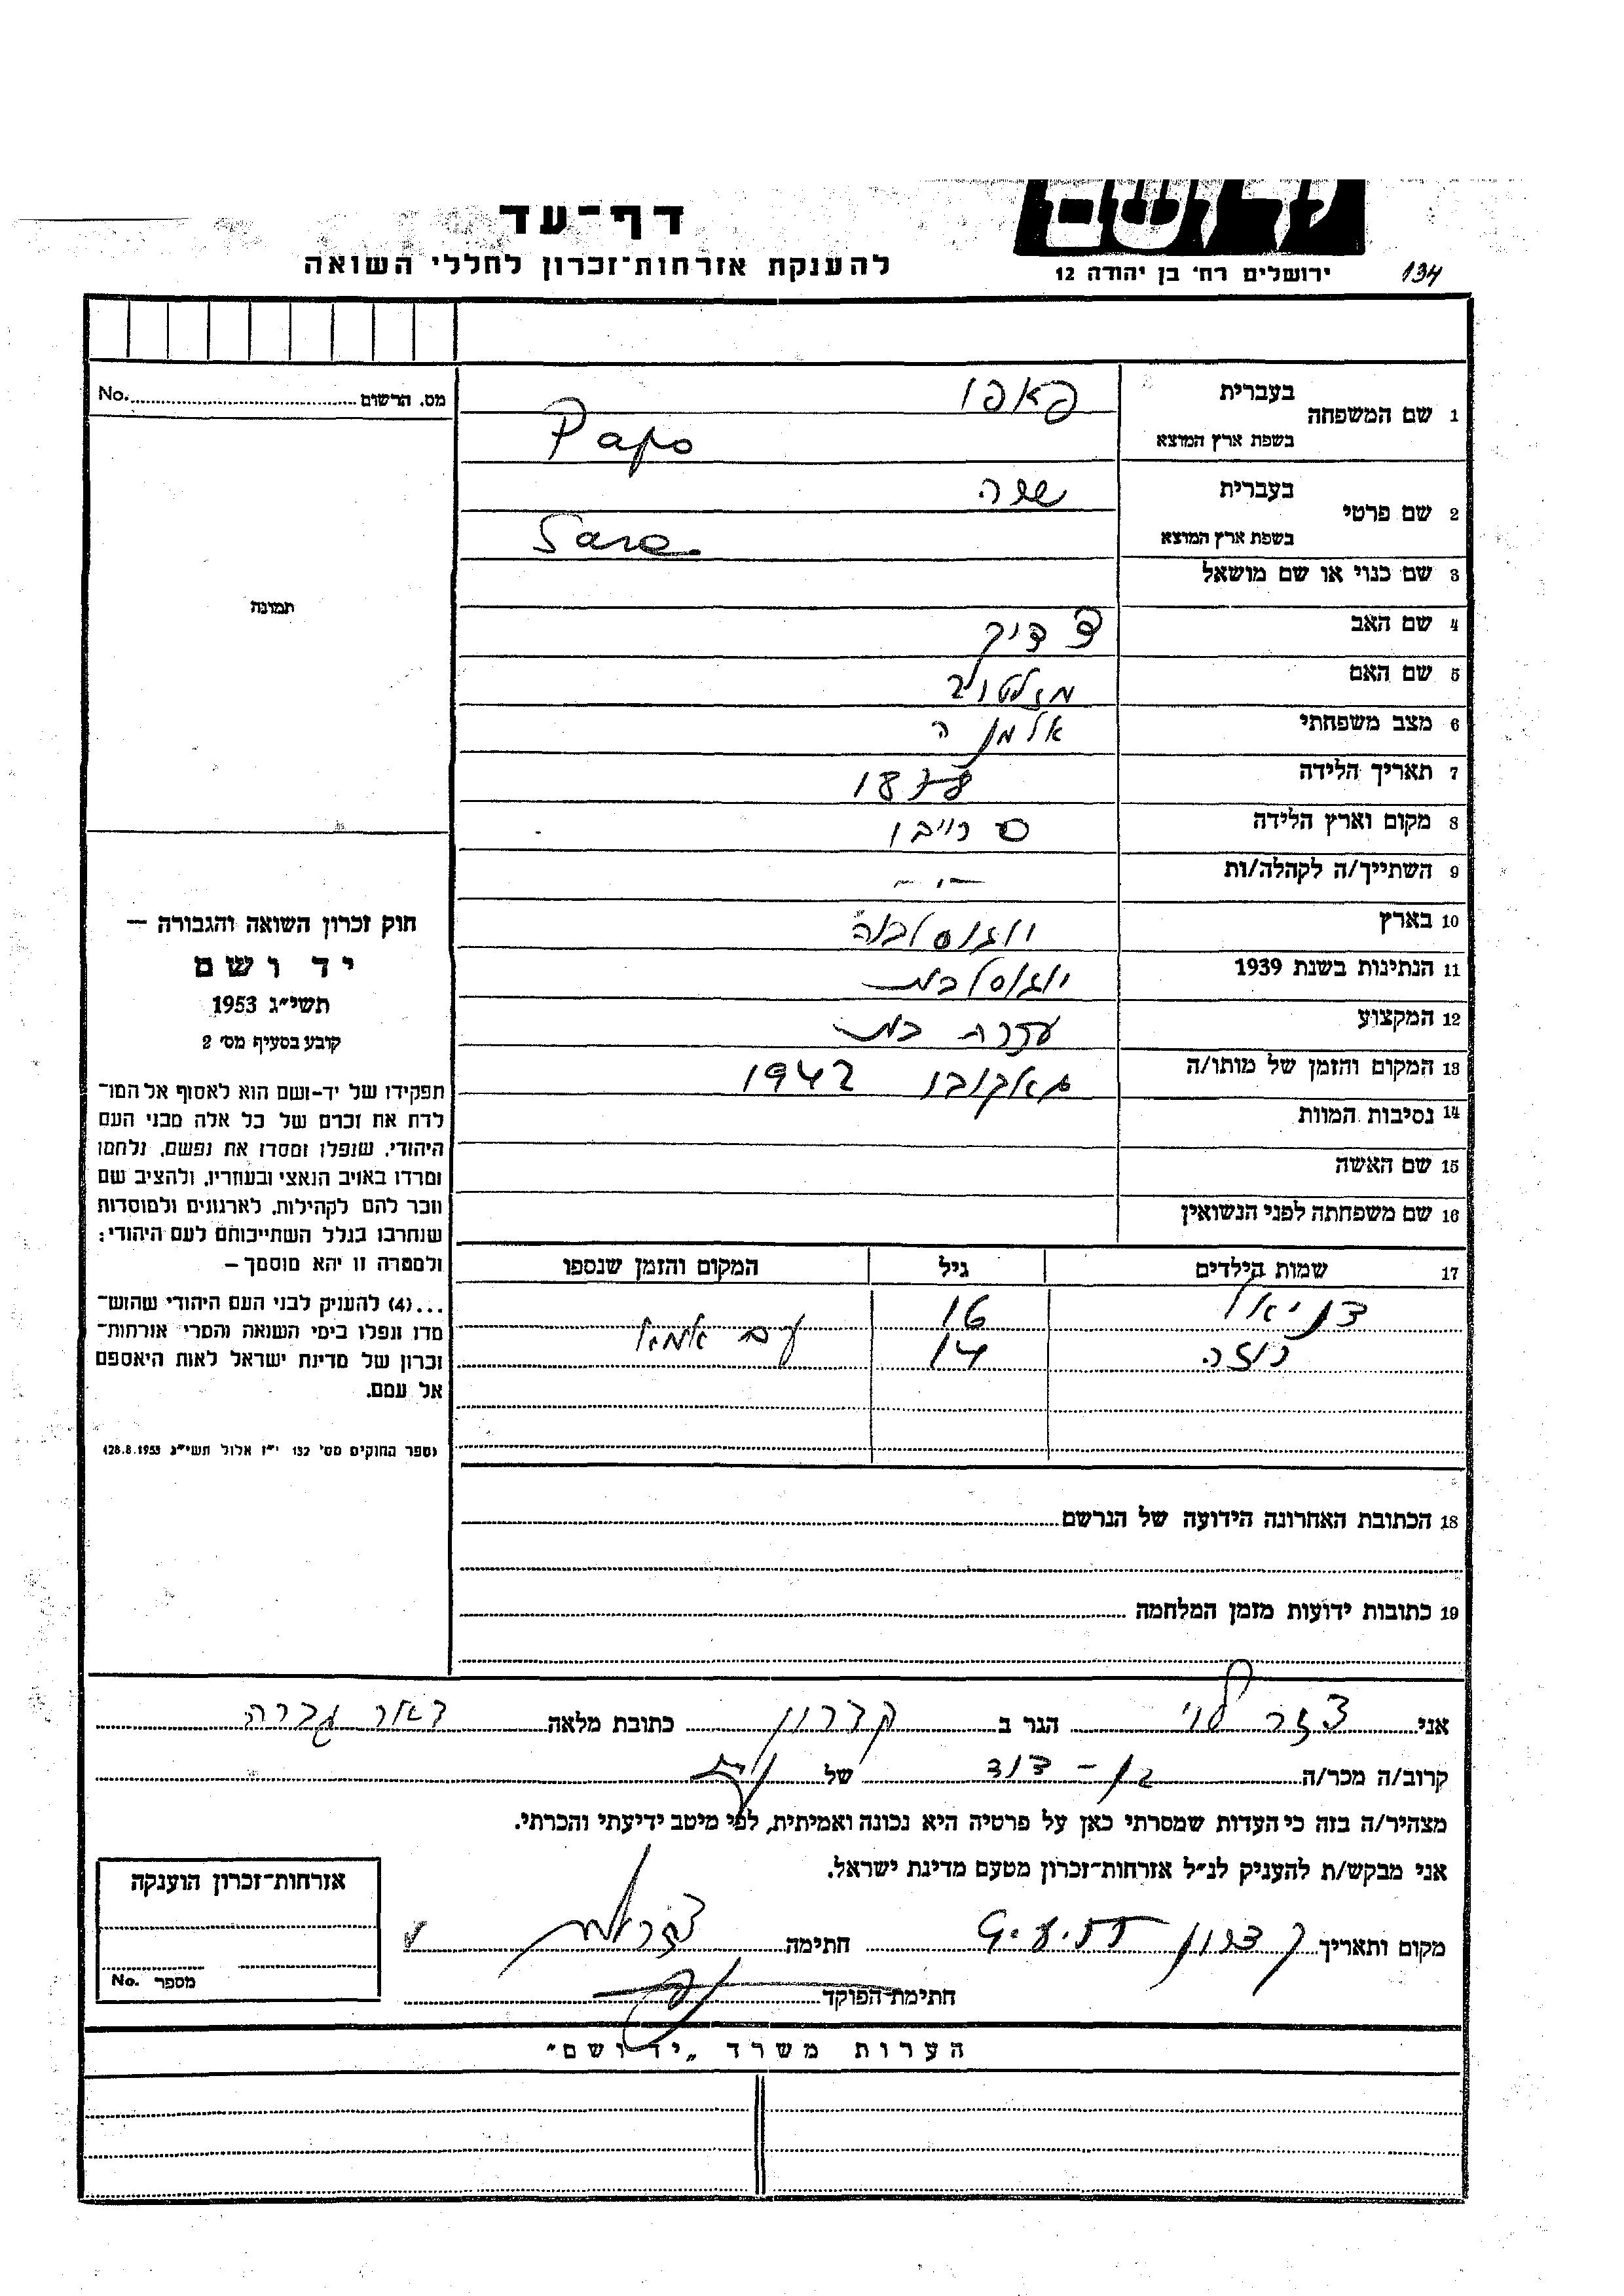 134
דף־עד
להענקת אזרחות־זכרון לחללי השואה
ירושלים רח' בן יהודה 12
מס. הרשום No.
תמונה
1 שם המשפחה בעברית פאפו
בשפת ארץ המוצא Papo
2 שם פרטי בעברית שרה
בשפת ארץ המוצא Sara
3 שם כנוי או שם מושאל
4 שם האב צדיק
5 שם האם מזלטוב
6 מצב משפחתי אלמנה
7 תאריך הלידה 1878
8 מקום וארץ הלידה
9 השתייך/ה לקהלה/ות — " —
10 בארץ יוגוסלביה
11 הנתינות בשנת 1939 יוגוסלבית
12 המקצוע עקרת בית
13 המקום והזמן של מותו/ה 1942
14 נסיבות המוות
15 שם האשה
16 שם משפחתה לפני הנשואין
17 שמות הילדים גיל המקום והזמן שנספו
דניאל 16 עם אמא
רוזה 14
18 הכתובת האחרונה הידועה של הנרשם
19 כתובות ידועות מזמן המלחמה
חוק זכרון השואה והגבורה —
יד ושם
תשי"ג 1953
קובע בסעיף מס' 2
תפקידו של יד-ושם הוא לאסוף אל המו־
לדת את זכרם של כל אלה מבני העם
היהודי, שנפלו ומסרו את נפשם, נלחמו
ומרדו באויב הנאצי ובעוזריו, ולהציב שם
וזכר להם לקהילות, לארגונים ולמוסדות
שנחרבו בגלל השתייכותם לעם היהודי;
ולמטרה זו יהא מוסמך —
...(4) להעניק לבני העם היהודי שהוש־
מדו ונפלו בימי השואה והמרי אזרחות־
זכרון של מדינת ישראל לאות היאספם
אל עמם.
(ספר החוקים מס' 132 י"ז אלול תשי"ג 28.8.1953)
אני לוי הגר ב קדרון כתובת מלאה דואר גדרה
קרוב/ה מכר/ה בן - דוד של
מצהיר/ה בזה כי העדות שמסרתי כאן על פרטיה היא נכונה ואמיתית, לפי מיטב ידיעתי והכרתי.
אני מבקש/ת להעניק לנ"ל אזרחות־זכרון מטעם מדינת ישראל.
מקום ותאריך קדרון חתימה
חתימת־הפוקד
אזרחות־זכרון הוענקה
מספר No.
הערות משרד „יד ושם"